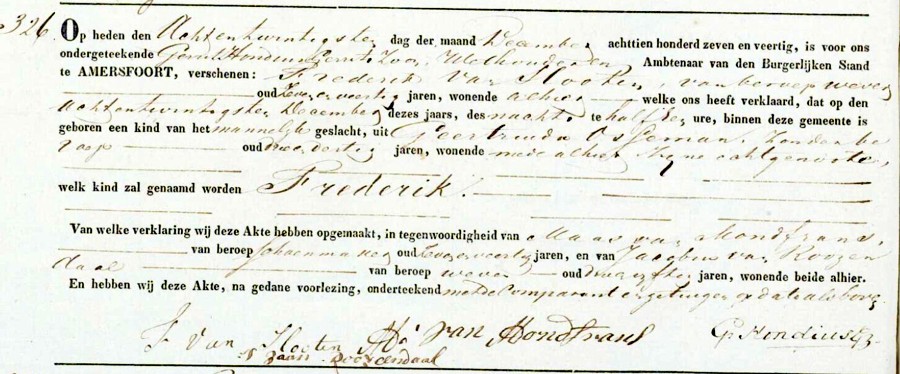 326. Op heden den Achtentwintigsten dag der maand December achttien honderd zeven en veertig, is voor ons
ondergeteekende Gerrit Hondius Gerrits Zoon, Wethouder en Ambtenaar van den Burgerlijken Stand
te AMERSFOORT, verschenen: Frederik van Slooten, van beroep wever
oud zeven en veertig jaren, wonende alhier welke ons heeft verklaard, dat op den
Achtentwintigsten December dezes jaars, des nachts te half ure, binnen deze gemeente is
geboren een kind van het mannelijk geslacht, uit Geertruida zonder be
roep oud jaren, wonende mede alhier zijne echtgenoote,
welk kind zal genaamd worden Frederik.
Van welke verklaring wij deze Akte hebben opgemaakt, in tegenwoordigheid van Maas van Hondfrans,
van beroep schoenmaker oud zeven en veertig jaren, en van Jacobus van Roozen
daal van beroep wever oud jaren, wonende beide alhier.
En hebben wij deze Akte, na gedane voorlezing, onderteekend met de Comparant en getuigen op dato als boven.
F Van Slooten Ms van Hondfrans G. Hondius Gz.
J van Roozendaal